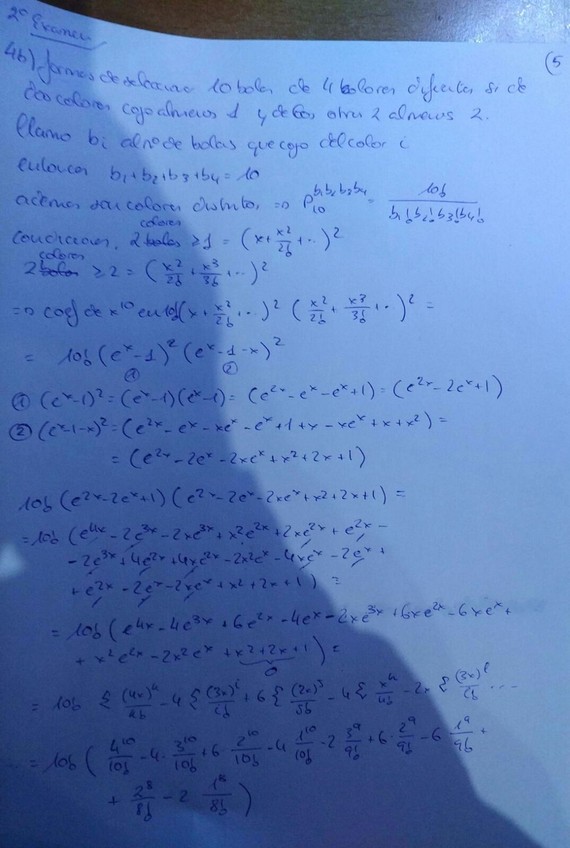 2º Examen
(5
4b) formas de seleccionar 10 bolas de 4 colores diferentes si de
dos colores cojo almenos 1 y de los otros 2 almenos 2.
llamo bi al nº de bolas que cojo del color i
entonces b₁+b₂+b₃+b₄=10
además son colores distintos => P₁₀^{b₁b₂b₃b₄} = 10! / b₁!b₂!b₃!b₄!
condiciones, 2 colores ≥1 = (x+x²/2!+..)²
2 colores ≥2 = (x²/2!+x³/3!+..)²
=> coef de x¹⁰ en 10!(x+x²/2!+..)² (x²/2!+x³/3!+..)² =
= 10!(eˣ-1)²(eˣ-1-x)²
① ②
① (eˣ-1)²=(eˣ-1)(eˣ-1)= (e²ˣ-eˣ-eˣ+1)=(e²ˣ-2eˣ+1)
② (eˣ-1-x)²=(e²ˣ-eˣ-xeˣ-eˣ+1+x-xeˣ+x+x²)=
= (e²ˣ-2eˣ-2xeˣ+x²+2x+1)
10!(e²ˣ-2eˣ+1)(e²ˣ-2eˣ-2xeˣ+x²+2x+1)=
=10!(e⁴ˣ-2e³ˣ-2xe³ˣ+x²e²ˣ+2xe²ˣ+e²ˣ-
-2e³ˣ+4e²ˣ+4xe²ˣ-2x²eˣ-4xeˣ-2eˣ+
+e²ˣ-2eˣ-2xeˣ+x²+2x+1)=
=10!(e⁴ˣ-4e³ˣ+6e²ˣ-4eˣ-2xe³ˣ+6xe²ˣ-6xeˣ+
+x²e²ˣ-2x²eˣ+x²+2x+1)=
0
=10! Σ (4x)ⁱ/i! -4 Σ (3x)ⁱ/i! +6 Σ (2x)ⁱ/i! -4 Σ xⁱ/i! -2x Σ (3x)ⁱ/i! ...
=10!(4¹⁰/10! -4·3¹⁰/10! +6·2¹⁰/10! -4 1¹⁰/10! -2 3⁹/9! +6·2⁹/9! -6 1⁹/9! +
+ 2⁸/8! - 2 1⁸/8!)